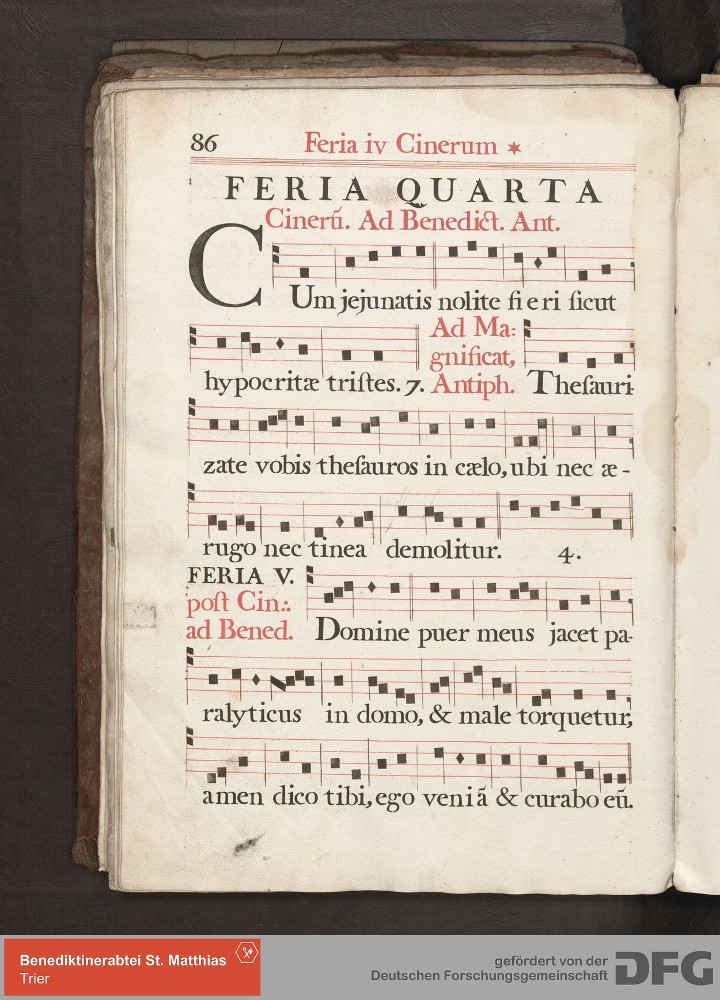 86 Feria iv Cinerum ✶
FERIA QUARTA
Cinerũ. Ad Benedict. Ant.
CUm jejunatis nolite fieri ſicut
hypocritæ triſtes. 7. Ad Ma:gnificat, Antiph. Theſauri-
zate vobis theſauros in cælo, ubi nec æ-
rugo nec tinea demolitur. 4.
FERIA V.
poſt Cin.:
ad Bened. Domine puer meus jacet pa-
ralyticus in domo, & male torquetur,
amen dico tibi, ego veniã & curabo eũ.
Benediktinerabtei St. Matthias
Trier
gefördert von der
Deutschen Forschungsgemeinschaft DFG